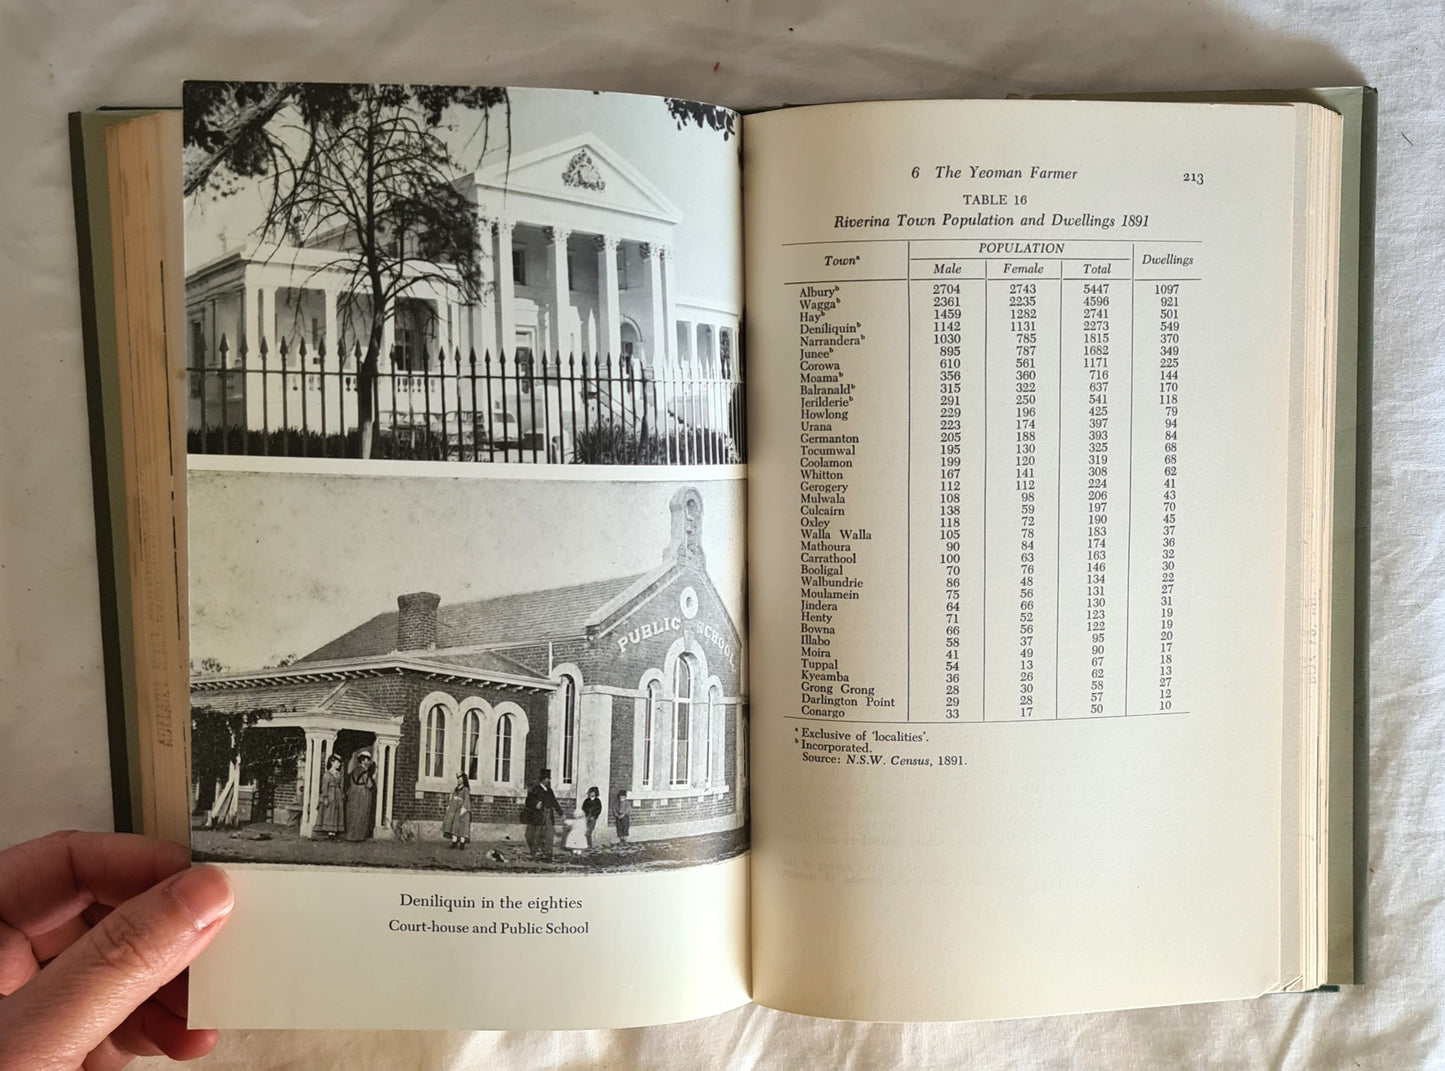 PUBLIC SCHOOL
Deniliquin in the eighties
Court-house and Public School
6 The Yeoman Farmer 213
TABLE 16
Riverina Town Population and Dwellings 1891
Townᵃ POPULATION Dwellings
Male Female Total
Alburyᵇ 2704 2743 5447 1097
Waggaᵇ 2361 2235 4596 921
Hayᵇ 1459 1282 2741 501
Deniliquinᵇ 1142 1131 2273 549
Narranderaᵇ 1030 785 1815 370
Juneeᵇ 895 787 1682 349
Corowa 610 561 1171 225
Moamaᵇ 356 360 716 144
Balranaldᵇ 315 322 637 170
Jerilderieᵇ 291 250 541 118
Howlong 229 196 425 79
Urana 223 174 397 94
Germanton 205 188 393 84
Tocumwal 195 130 325 68
Coolamon 199 120 319 68
Whitton 167 141 308 62
Gerogery 112 112 224 41
Mulwala 108 98 206 43
Culcairn 138 59 197 70
Oxley 118 72 190 45
Walla Walla 105 78 183 37
Mathoura 90 84 174 36
Carrathool 100 63 163 32
Booligal 70 76 146 30
Walbundrie 86 48 134 22
Moulamein 75 56 131 27
Jindera 64 66 130 31
Henty 71 52 123 19
Bowna 66 56 122 19
Illabo 58 37 95 20
Moira 41 49 90 17
Tuppal 54 13 67 18
Kyeamba 36 26 62 13
Grong Grong 28 30 58 27
Darlington Point 29 28 57 12
Conargo 33 17 50 10
ᵃ Exclusive of 'localities'.
ᵇ Incorporated.
Source: N.S.W. Census, 1891.